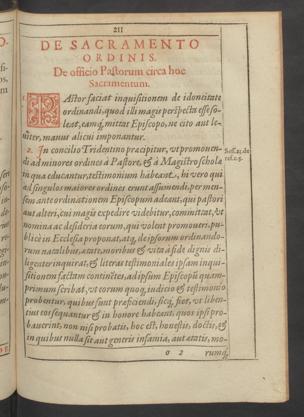 211
DE SACRAMENTO
ORDINIS.
De officio Pastorum circa hoc
Sacramentum.
PAstor faciat inquisitionem de idoneitate
ordinandi, quod illi magis perspecta esse so-
leat, eamq́; mittat Episcopo, ne cito aut le-
uiter, manus alicui imponantur.
2. In concilio Tridentino præcipitur, vt promouen-
di ad minores ordines à Pastore, & à Magistro scholæ
in qua educantur, testimonium habeant, hi vero qui
ad singulos maiores ordines erunt assumendi, per men-
sem ante ordinationem Episcopum adeant, qui pastori
aut alteri, cui magis expedire videbitur, committat, vt
nomina ac desideria eorum, qui volent promoueri, pu-
blicè in Ecclesia proponat, atq́; de ipsorum ordinando-
rum natalibus, ætate, moribus & vita à fide dignis di-
ligenter inquirat, & literas testimoniales ipsam inqui-
sitionem factam continẽtes, ad ipsum Episcopũ quam-
primum scribat, vt eorum quoq́; iudicio & testimonio
probentur, quibus sunt præficiendi, sicq́; fiet, vt liben-
tius eos sequantur & in honore habeant, quos ipsi pro-
bauerint, non nisi probatis, hoc est, honestis, doctis, &
in quibus nulla sit aut generis infamia, aut ætatis, mo-
Sess. 23. de
ref. c. 5.
O 2
rumq́;